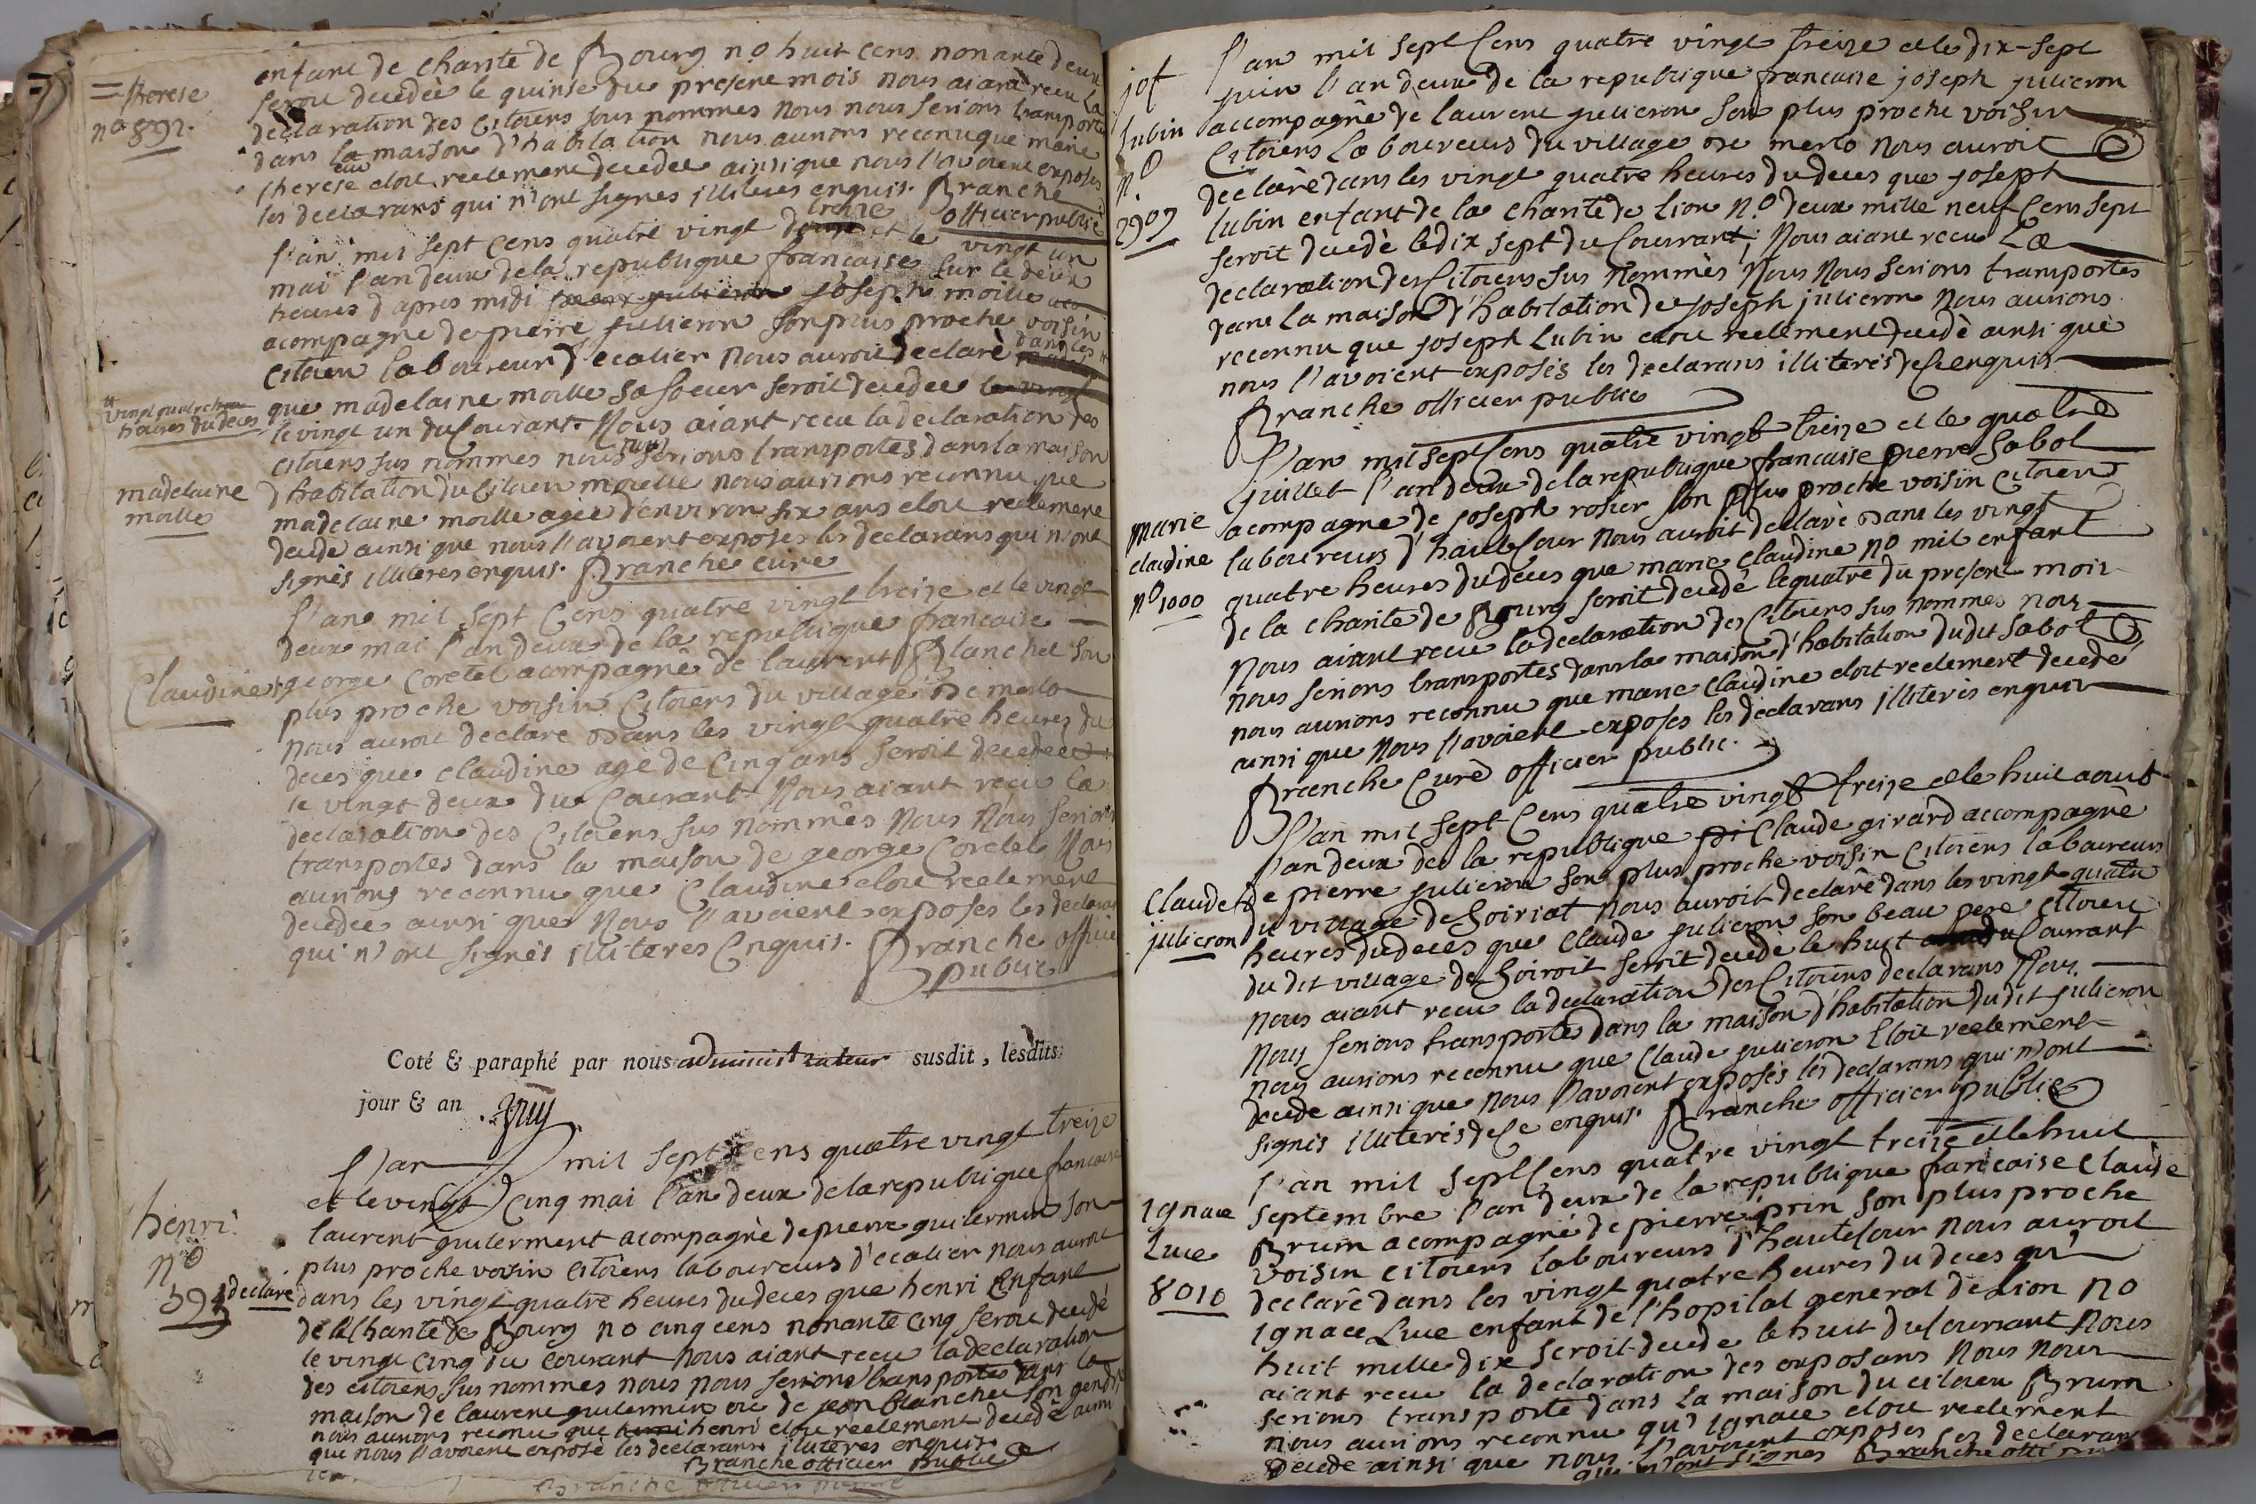 enfant de charité de Bourg no huit cens nonante deux
=therese
no 892.
seroit decedée le quinse du present mois nous aiant recu la
declaration des citoiens sous nommes nous nous serions transportes
dans la maison d'habitation nous aurions reconnu que marie
therese etoit reelement decedée ainsi que nous l'avoient exposes
les declarans qui n'ont signes illiteres enquis. Branche
officier public
l'an mil sept cens quatre vingt treize et le vingt un
mai l'an deux de la republique francaise sur le deux
heures d'apres midi joseph moille
acompagne de pierre julieron son plus proche voisin
citoien laboureur d'ecalier nous auroit declarè dans les
vingt quatre
heures du deces
que madelaine moille sa soeur seroit decedee le vingt
le vingt un du courant. Nous aiant recu la declaration des
citoiens sus nommes nous nous serions transportes dans la maison
madelaine
moille
d'habitation du citoien moille nous aurions reconnu que
madelaine moille agée d'environ six ans etoit reelement
decedé ainsi que nous l'avoient exposes les declarans qui n'ont
signès illiteres enquis. Branche curé
l'an mil sept cens quatre vingt treize et le vingt
deux mai l'an deux de la republique francaise
Claudine
george coretel acompagnè de laurent Blanchet son
plus proche voisin citoiens du village de merlo
nous auroit declare dans les vingt quatre heures du
deces que claudine agé de cinq ans seroit decedée
le vingt deux du courant Nous aiant recu la
declaration des citoiens sus nommès Nous Nous serions
transportes dans la maison de george coretel Nous
aurions reconnu que Claudine etoit reelement
decedee ainsi que Nous l'avoient exposes les declarans
qui n'ont signès illiteres enquis. Branche officier
public
Coté & paraphé par nous administrateur susdit, lesdits
jour & an.
l'an mil sept cens quatre vingt treize
et le vingt cinq mai l'an deux de la republique francaise
henri
no
595
laurent guilermint acompagnè de pierre guilermin son
plus proche voisin citoiens laboureurs d'ecalier nous auroit
declaré dans les vingt quatre heures du deces que henri enfant
de la charité de Bourg no cinq cens nonante cinq seroit decedé
le vingt cinq du courant nous aiant recu la declaration
des citoiens sus nommes nous nous serions transportes dans la
maison de laurent guilermin ou de jean blanchet son gendre
nous aurions reconu que henri etoit reelement decedè ainsi
que nous l'avoient exposé les declarans illiteres enquis
Branche officier public
Branche officier public
l'an mil sept cens quatre vingt treize et le dix-sept
jof
lubin
no
2907
juin l'an deux de la republique francaise joseph julieron
accompagnê de laurent julieron son plus proche voisin
citoiens laboureurs du village de merlo nous auroit
declarê dans les vingt quatre heures du deces que joseph
lubin enfant de la charité de lion no deux mille neuf cens sept
seroit decedè le dix sept du courant; Nous aiant recu la
declaration des citoiens sus nommès Nous Nous serions transportes
dans la maison d'habitation de joseph julieron Nous aurions
reconnu que joseph lubin etoit reelement decedè ainsi que
nous l'avoient exposés les declarans illiterès de ce enquis
Branche officier public
l'an mil sept cens quatre vingt treize et le quatre
juillet l'an deux de la republique francaise pierre sabot
marie
claudine
no 1000
acompagne de joseph rosier son plus proche voisin citoiens
laboureurs d'hautecour nous auroit declarè dans les vingt
quatre heures du deces que marie claudine no mil enfant
de la charité de Bourg seroit decedé le quatre du present mois
Nous aiant recu la declaration des citoiens sus nommes nous
nous serions transportes dans la maison d'habitation dudit sabot
nous aurions reconnu que marie claudine etoit reelement decedè
ainsi que nous l'avoient exposes les declarans illiterès enquis
Branche curé officier public.
l'an mil sept cens quatre vingt treize et le huit aout
l'an deux de la republique pi claude girard accompagnê
Claude
julieron
de pierre julieron son plus proche voisin citoiens laboureurs
du village de soiriat nous auroit declarê dans les vingt quatre
heures du deces que claude julieron son beau pere citoien
du dit village de soiroit seroit decedé le huit du courrant
Nous aiant recu la declaration des citoiens declarans Nous
Nous serions transportes dans la maison d'habitation dudit julieron
nous aurions reconnu que claude julieron etoit reelement
decede ainsi que nous l'avoient exposés les declarans qui n'ont
signés illiterés de ce enquis. Branche officier public
l'an mil sept cens quatre vingt treize et le huit
ignace
luce
8010
septembre l'an deux de la republique francaise Claude
Brum acompagné de pierre prin son plus proche
voisin citoiens laboureurs d'hautecour nous auroit
declarê dans les vingt quatre heures du deces qu'
ignace luce enfant de l'hopital general de lion no
huit mille dix seroit decede le huit du courrant Nous
aiant recu la declaration des exposans Nous Nous
serions transporte dans la maison du citoien Brum
nous aurions reconnu qu'ignace etoit reelement
decede ainsi que nous l'avoient exposes les declarans
qui n'ont signes Branche offi